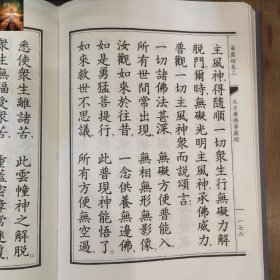 華嚴經卷三
大方廣佛華嚴經
一七六
主風神得隨順一切衆生行無礙力解
脫門。爾時無礙光明主風神承佛威力
普觀一切主風神衆而說頌言
一切諸佛法甚深 無礙方便普能入
所有世間常出現 無相無形無影像
汝觀如來於往昔 一念供養無邊佛
如是勇猛菩提行 此普現神能悟了
如來救世不思議 所有方便無空過
悉使衆生離諸苦 此雲幢神之解脫
衆生無福受衆苦 重蓋密障常迷覆